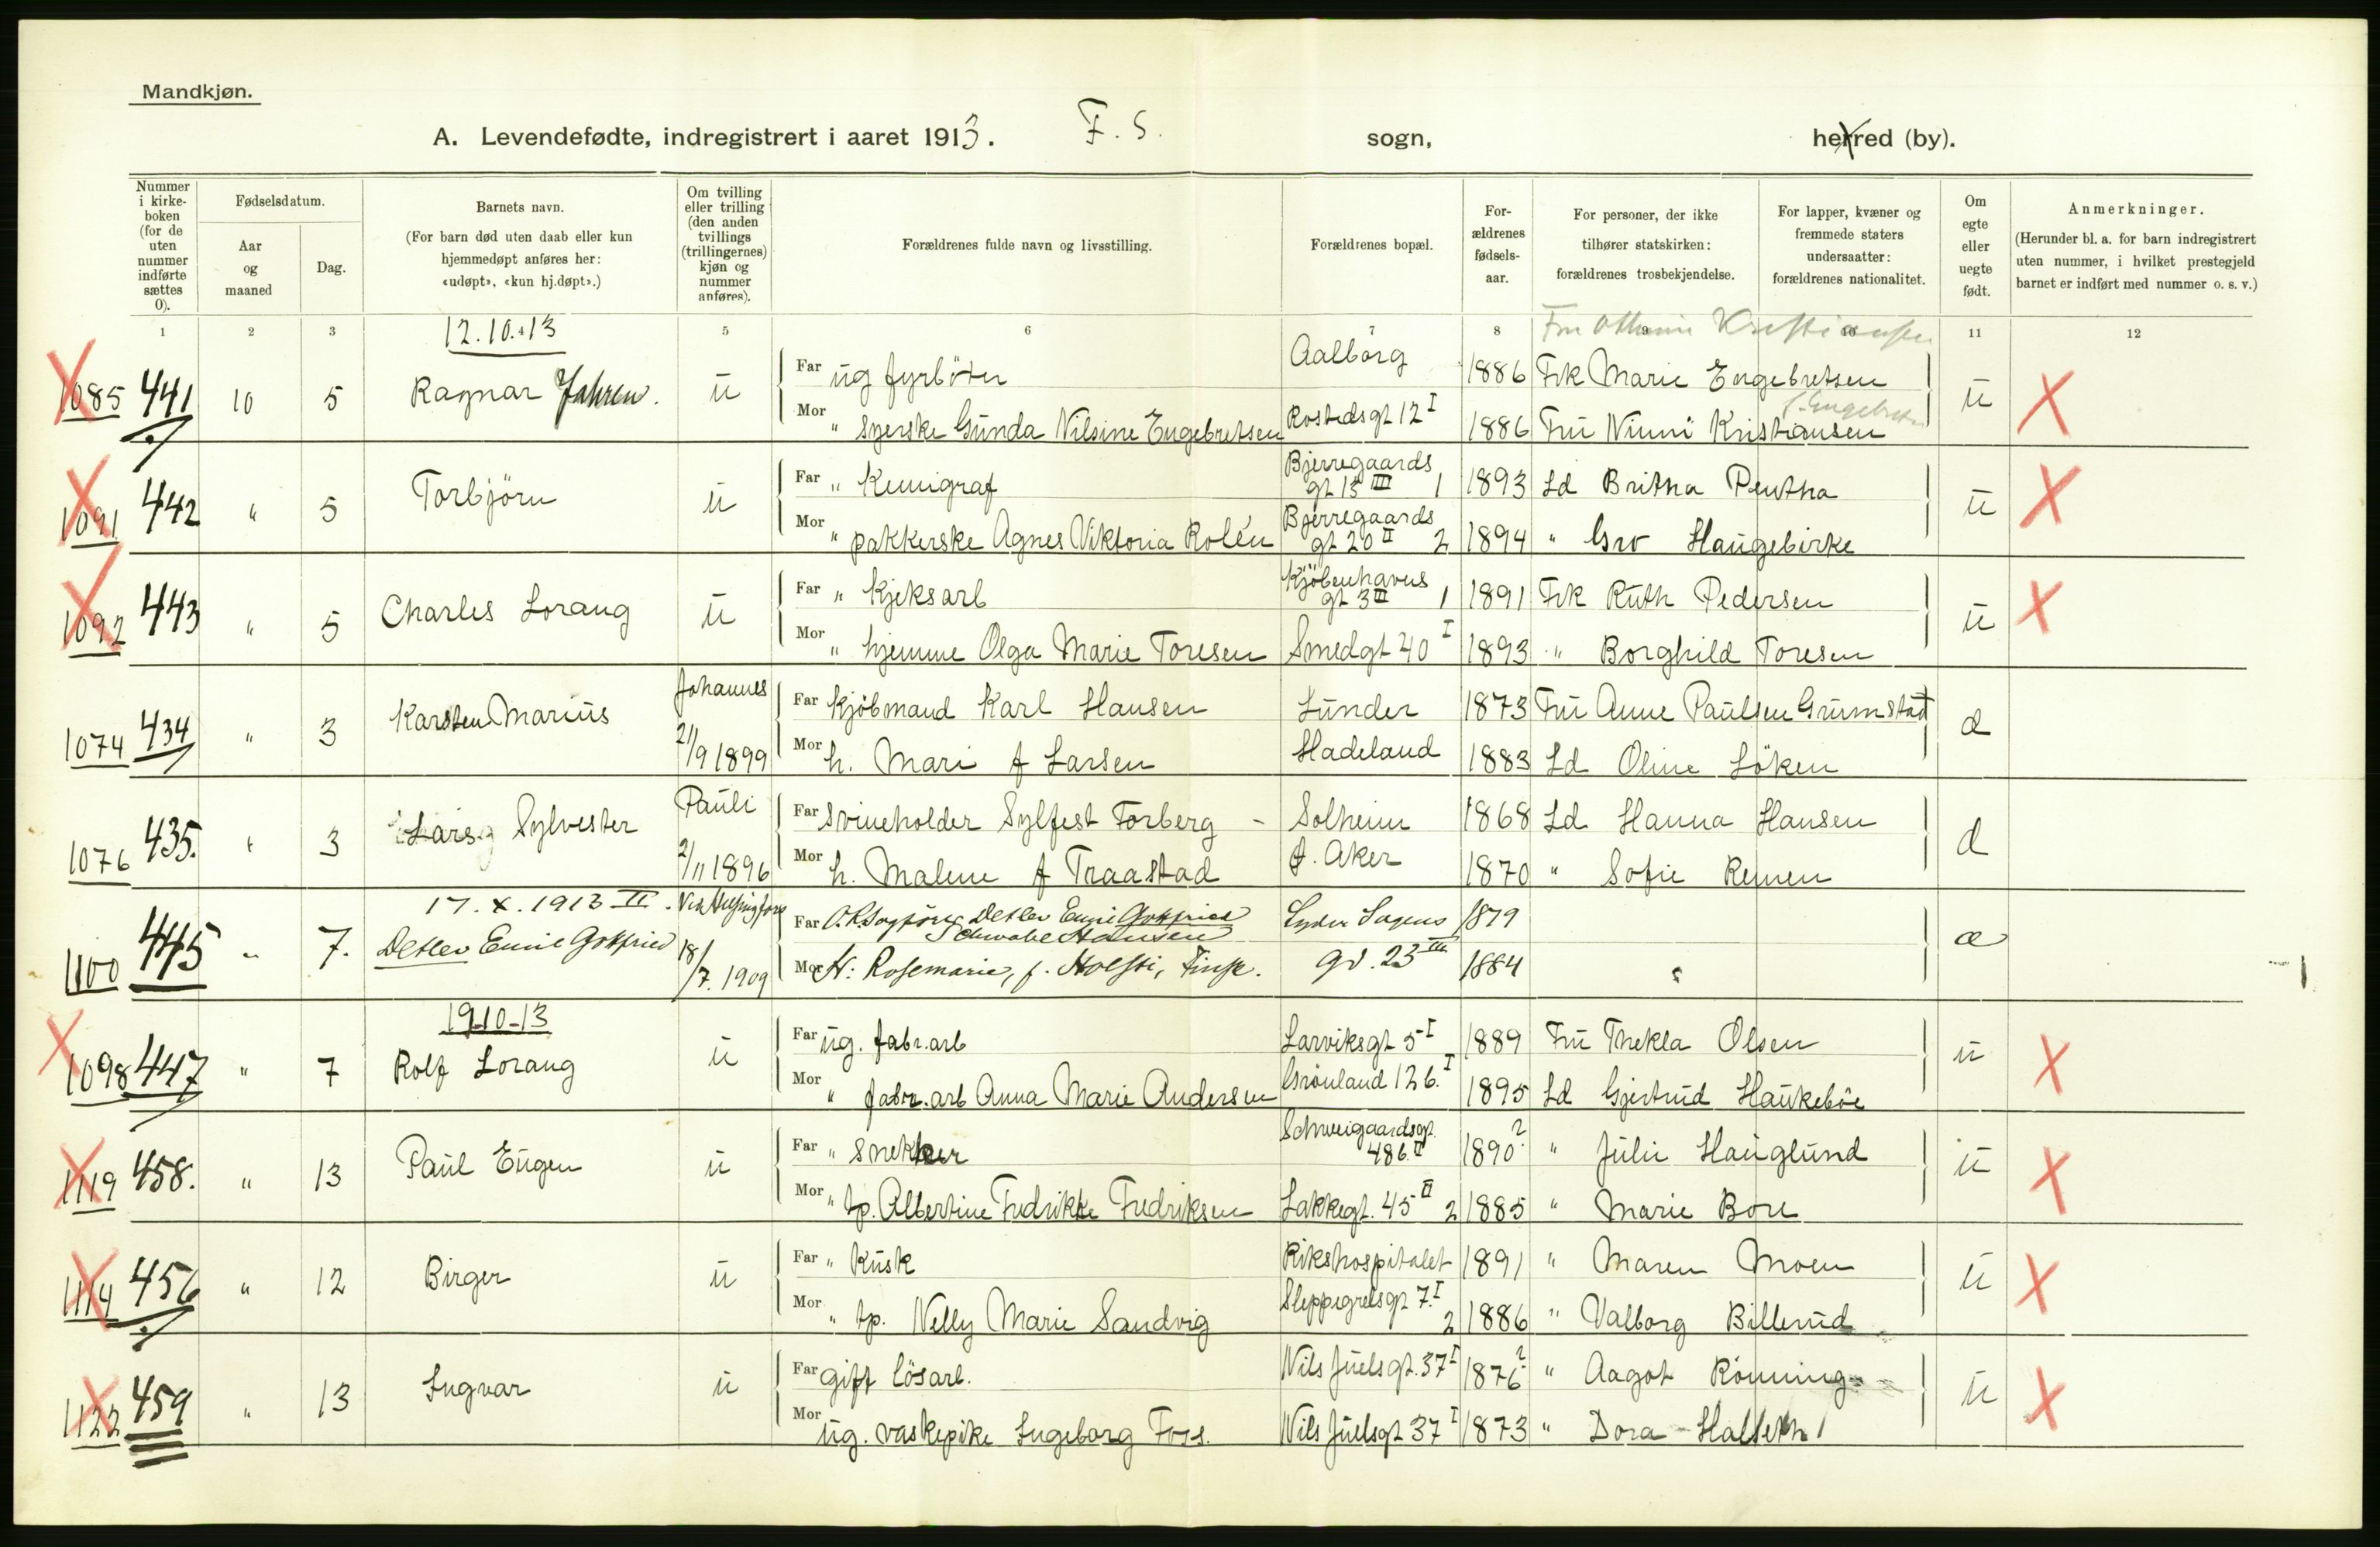 Mandkjøn.
A. Levendefødte, indregistrert i aaret 1913. F. S. sogn, herred (by).
Nummer i kirke-boken (for de uten nummer indførte sættes 0).
Fødselsdatum.
Aar og maaned
Dag.
Barnets navn.
(For barn død uten daab eller kun hjemmedøpt anføres her: «udøpt», «kun hj.døpt».)
Om tvilling eller trilling (den anden tvillings (trillingernes) kjøn og nummer anføres).
Forældrenes fulde navn og livsstilling.
Forældrenes bopæl.
For-ældrenes fødsels-aar.
For personer, der ikke tilhører statskirken: forældrenes trosbekjendelse.
For lapper, kvæner og fremmede staters undersaatter: forældrenes nationalitet.
Om egte eller uegte født.
Anmerkninger.
(Herunder bl. a. for barn indregistrert uten nummer, i hvilket prestegjeld barnet er indført med nummer o. s. v.)
1 2 3 4 5 6 7 8 9 10 11 12
12.10.13
1085 441 10 5 Ragnar Jahren. ū Far ūg fyrböter Aalborg 1886 Frk Marie Engebretsen ū
Mor " syerske Gūnda Nilsine Engebretsen Rostedsgt 12 I 1886 Frū Ninni Kristiansen
1091 442 " 5 Torbjörn ū Far " Kemigraf Bjerregaards gt 13 III 1 1893 Ld Britha Pentha ū
Mor " pakkerske Agnes Viktoria Rolén Bjerregaards gt 20 II 2 1894 " Gro Haūgebirke
1092 443 " 5 Charles Lorang ū Far " Kjeksarb Kjöbenhavns gt 3 III 1 1891 Frk Rūth Pedersen ū
Mor " hjemme Olga Marie Toresen Smedgt 40 I 1893 " Borghild Toresen
1074 434 " 3 Karsten Mariūs Johannes 21/9 1899 Far Kjöbmand Karl Hansen Lūnder 1873 Frū Anne Paūlsen Grūmstad d
Mor h. Mari f Larsen Hadeland 1883 Ld Oline Löken
1076 435. " 3 Lars Sylvester Paūli 2/11 1896 Far Svineholder Sylfest Torberg - Solheim 1868 Ld Hanna Hansen d
Mor h. Malene f Traastad Ø. Aker 1870 " Sofie Remen
17. X. 1913 II.
1100 445 " 7. Detlev Emil Gottfried 18/7. 1909 Far O.R.Sagförer Detlev Emil Gottfried Schwabe Hansen Lyder Sagens 1879
Mor H: Rosemarie, f. Holsti, Finsk. gd. 23 III 1884
19-10-13
1098 447 " 7 Rolf Lorang ū Far ūg. fabr.arb Larviksgt 5 I 1889 Frū Thekla Olsen ū
Mor " fabr.arb Anna Marie Andersen Grönland 12 b. I 1895 Ld Gjertrūd Haūkeböe
1119 458. " 13 Paūl Eūgen ū Far " snekker Schweigaardsgt. 48 b. II 1890? " Jūlie Haūglūnd ū
Mor " tp. Albertine Fredrikke Fredriksen Lakkegt. 45 II 2 1885 " Marie Bore
1114 456 " 12 Birger ū Far " Kūsk Rikshospitalet 1891 " Maren Moen ū
Mor " tp. Nelly Marie Sandvig Sleppegrelsgt 7. I 2 1886 " Valborg Billerūd
1122 459 " 13 Ingvar ū Far gift lösarb. Nils Jūelsgt. 37 I 1876? " Aagot Rönning ū
Mor ūg. vaskepike Ingeborg Foss. Nils Jūelsgt 37 I 1873 " Dora Halseth